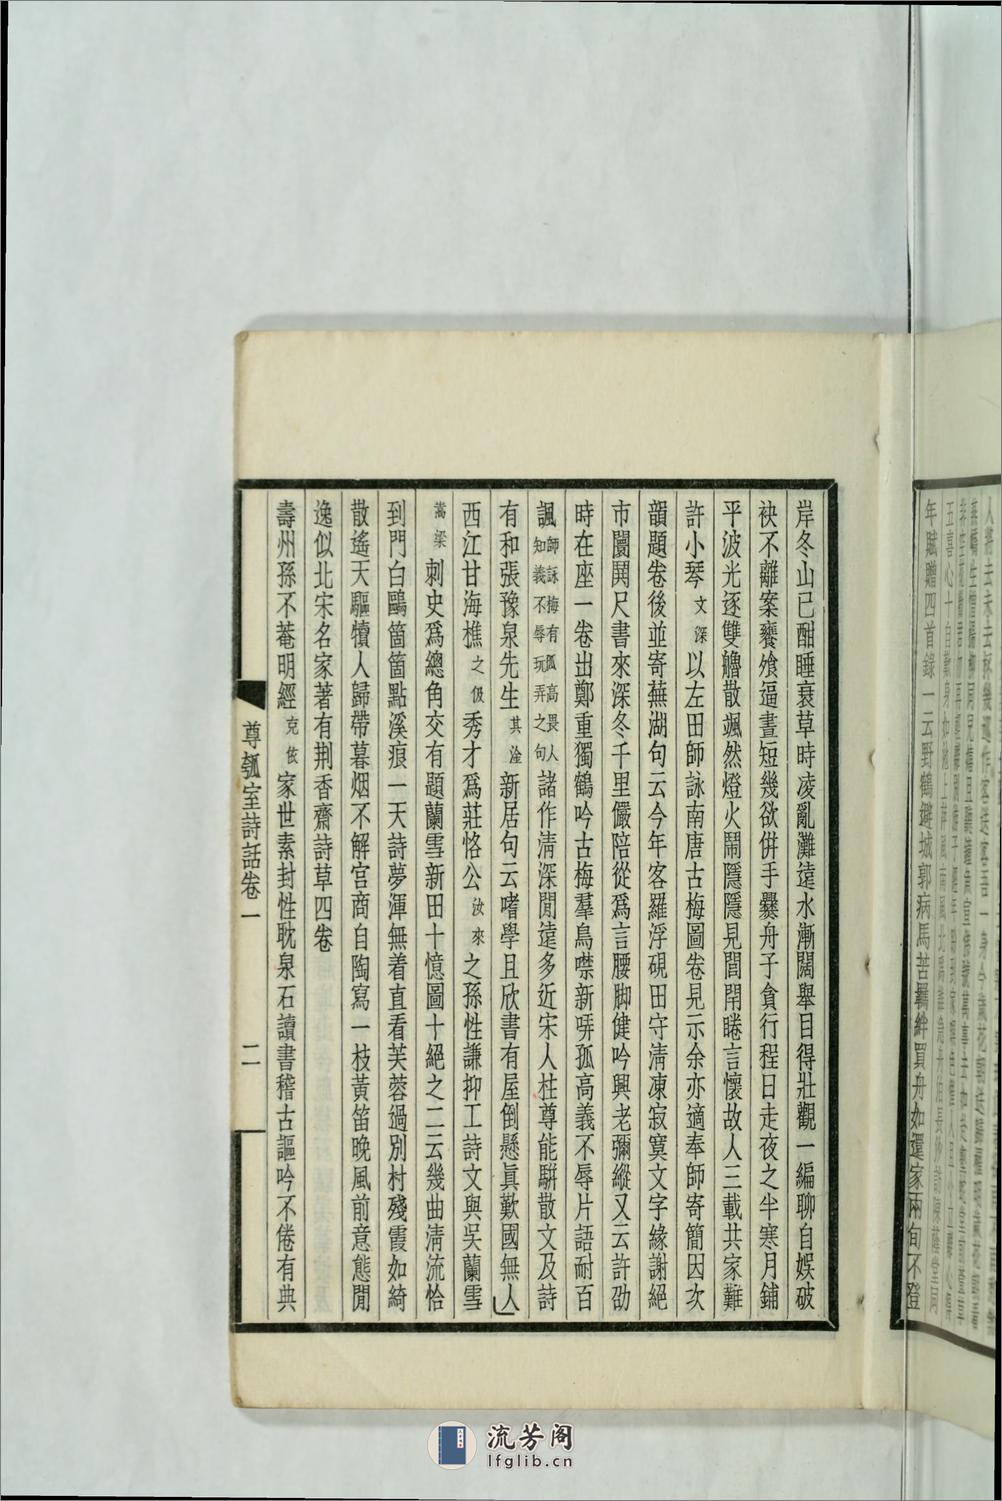 年賦贈四首錄一云野鶴避城郭病馬苦羈絆買舟如還家兩旬不登
岸冬山已酣睡衰草時凌亂灘遠水漸闊舉目得壯觀一編聊自娛破
袂不離案饔飧逼晝短幾欲倂手爨舟子貪行程日走夜之半寒月鋪
平波光逐雙艪散颯然燈火鬧隱隱見閭閈睠言懷故人三載共家難
許小琴文深以左田師詠南唐古梅圖卷見示余亦適奉師寄簡因次
韻題卷後並寄蕪湖句云今年客羅浮硯田守淸凍寂寞文字緣謝絕
市闤鬨尺書來深冬千里儼陪從爲言腰脚健吟興老彌縱又云許劭
時在座一卷出鄭重獨鶴吟古梅羣鳥噤新哢孤高義不辱片語耐百
諷師詠梅有孤高畏人知義不辱玩弄之句諸作淸深閒遠多近宋人杜尊能騈散文及詩
有和張豫泉先生其淦新居句云嗜學且欣書有屋倒懸眞歎國無人
西江甘海樵之伋秀才爲莊恪公汝來之孫性謙抑工詩文與吳蘭雪
嵩梁刺史爲總角交有題蘭雪新田十憶圖十絕之二云幾曲淸流恰
到門白鷗箇箇點溪痕一天詩夢渾無着直看芙蓉過別村殘霞如綺
散遙天驅犢人歸帶暮烟不解宮商自陶寫一枝黃笛晚風前意態閒
逸似北宋名家著有荆香齋詩草四卷
壽州孫不菴明經克依家世素封性耽泉石讀書稽古謳吟不倦有典
尊瓠室詩話卷一
二
流芳阁
lfglib.cn